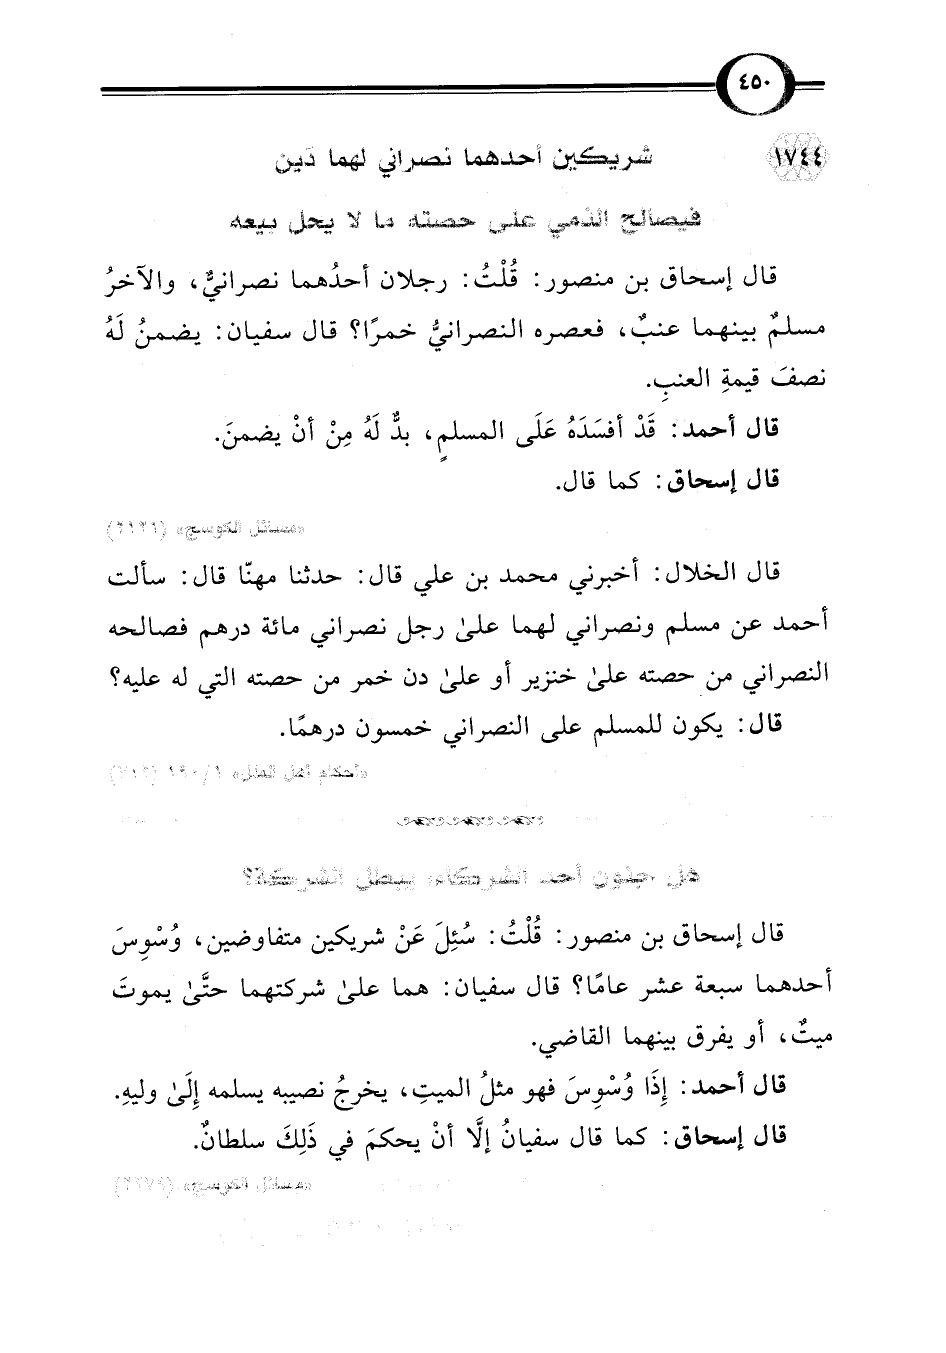 ٤٥٠
١٧٤٤ شريكين أحدهما نصراني لهما دَين
فيصالح الذمي على حصته ما لا يحل بيعه
قال إسحاق بن منصور: قُلْتُ: رجلان أحدُهما نصرانيٌّ، والآخرُ
مسلمٌ بينهما عنبٌ، فعصره النصرانيُّ خمرًا؟ قال سفيان: يضمنُ لَهُ
نصفَ قيمةِ العنبِ.
قال أحمد: قَدْ أفسَدَهُ عَلَى المسلمِ، بدٌّ لَهُ مِنْ أنْ يضمنَ.
قال إسحاق: كما قال.
«مسائل الكوسج»
قال الخلال: أخبرني محمد بن علي قال: حدثنا مهنّا قال: سألت
أحمد عن مسلم ونصراني لهما علىٰ رجل نصراني مائة درهم فصالحه
النصراني من حصته علىٰ خنزير أو علىٰ دن خمر من حصته التي له عليه؟
قال: يكون للمسلم على النصراني خمسون درهمًا.
«أحكام أهل الملل» ١/ ١٩٠
هل جنون أحد الشركاء يبطل الشركة؟
قال إسحاق بن منصور: قُلْتُ: سُئِلَ عَنْ شريكين متفاوضين، وُسْوِسَ
أحدهما سبعة عشر عامًا؟ قال سفيان: هما علىٰ شركتهما حتَّىٰ يموتَ
ميتٌ، أو يفرق بينهما القاضي.
قال أحمد: إِذَا وُسْوِسَ فهو مثلُ الميتِ، يخرجُ نصيبه يسلمه إِلَىٰ وليهِ.
قال إسحاق: كما قال سفيانُ إلَّا أنْ يحكمَ في ذَلِكَ سلطانٌ.
«مسائل الكوسج»